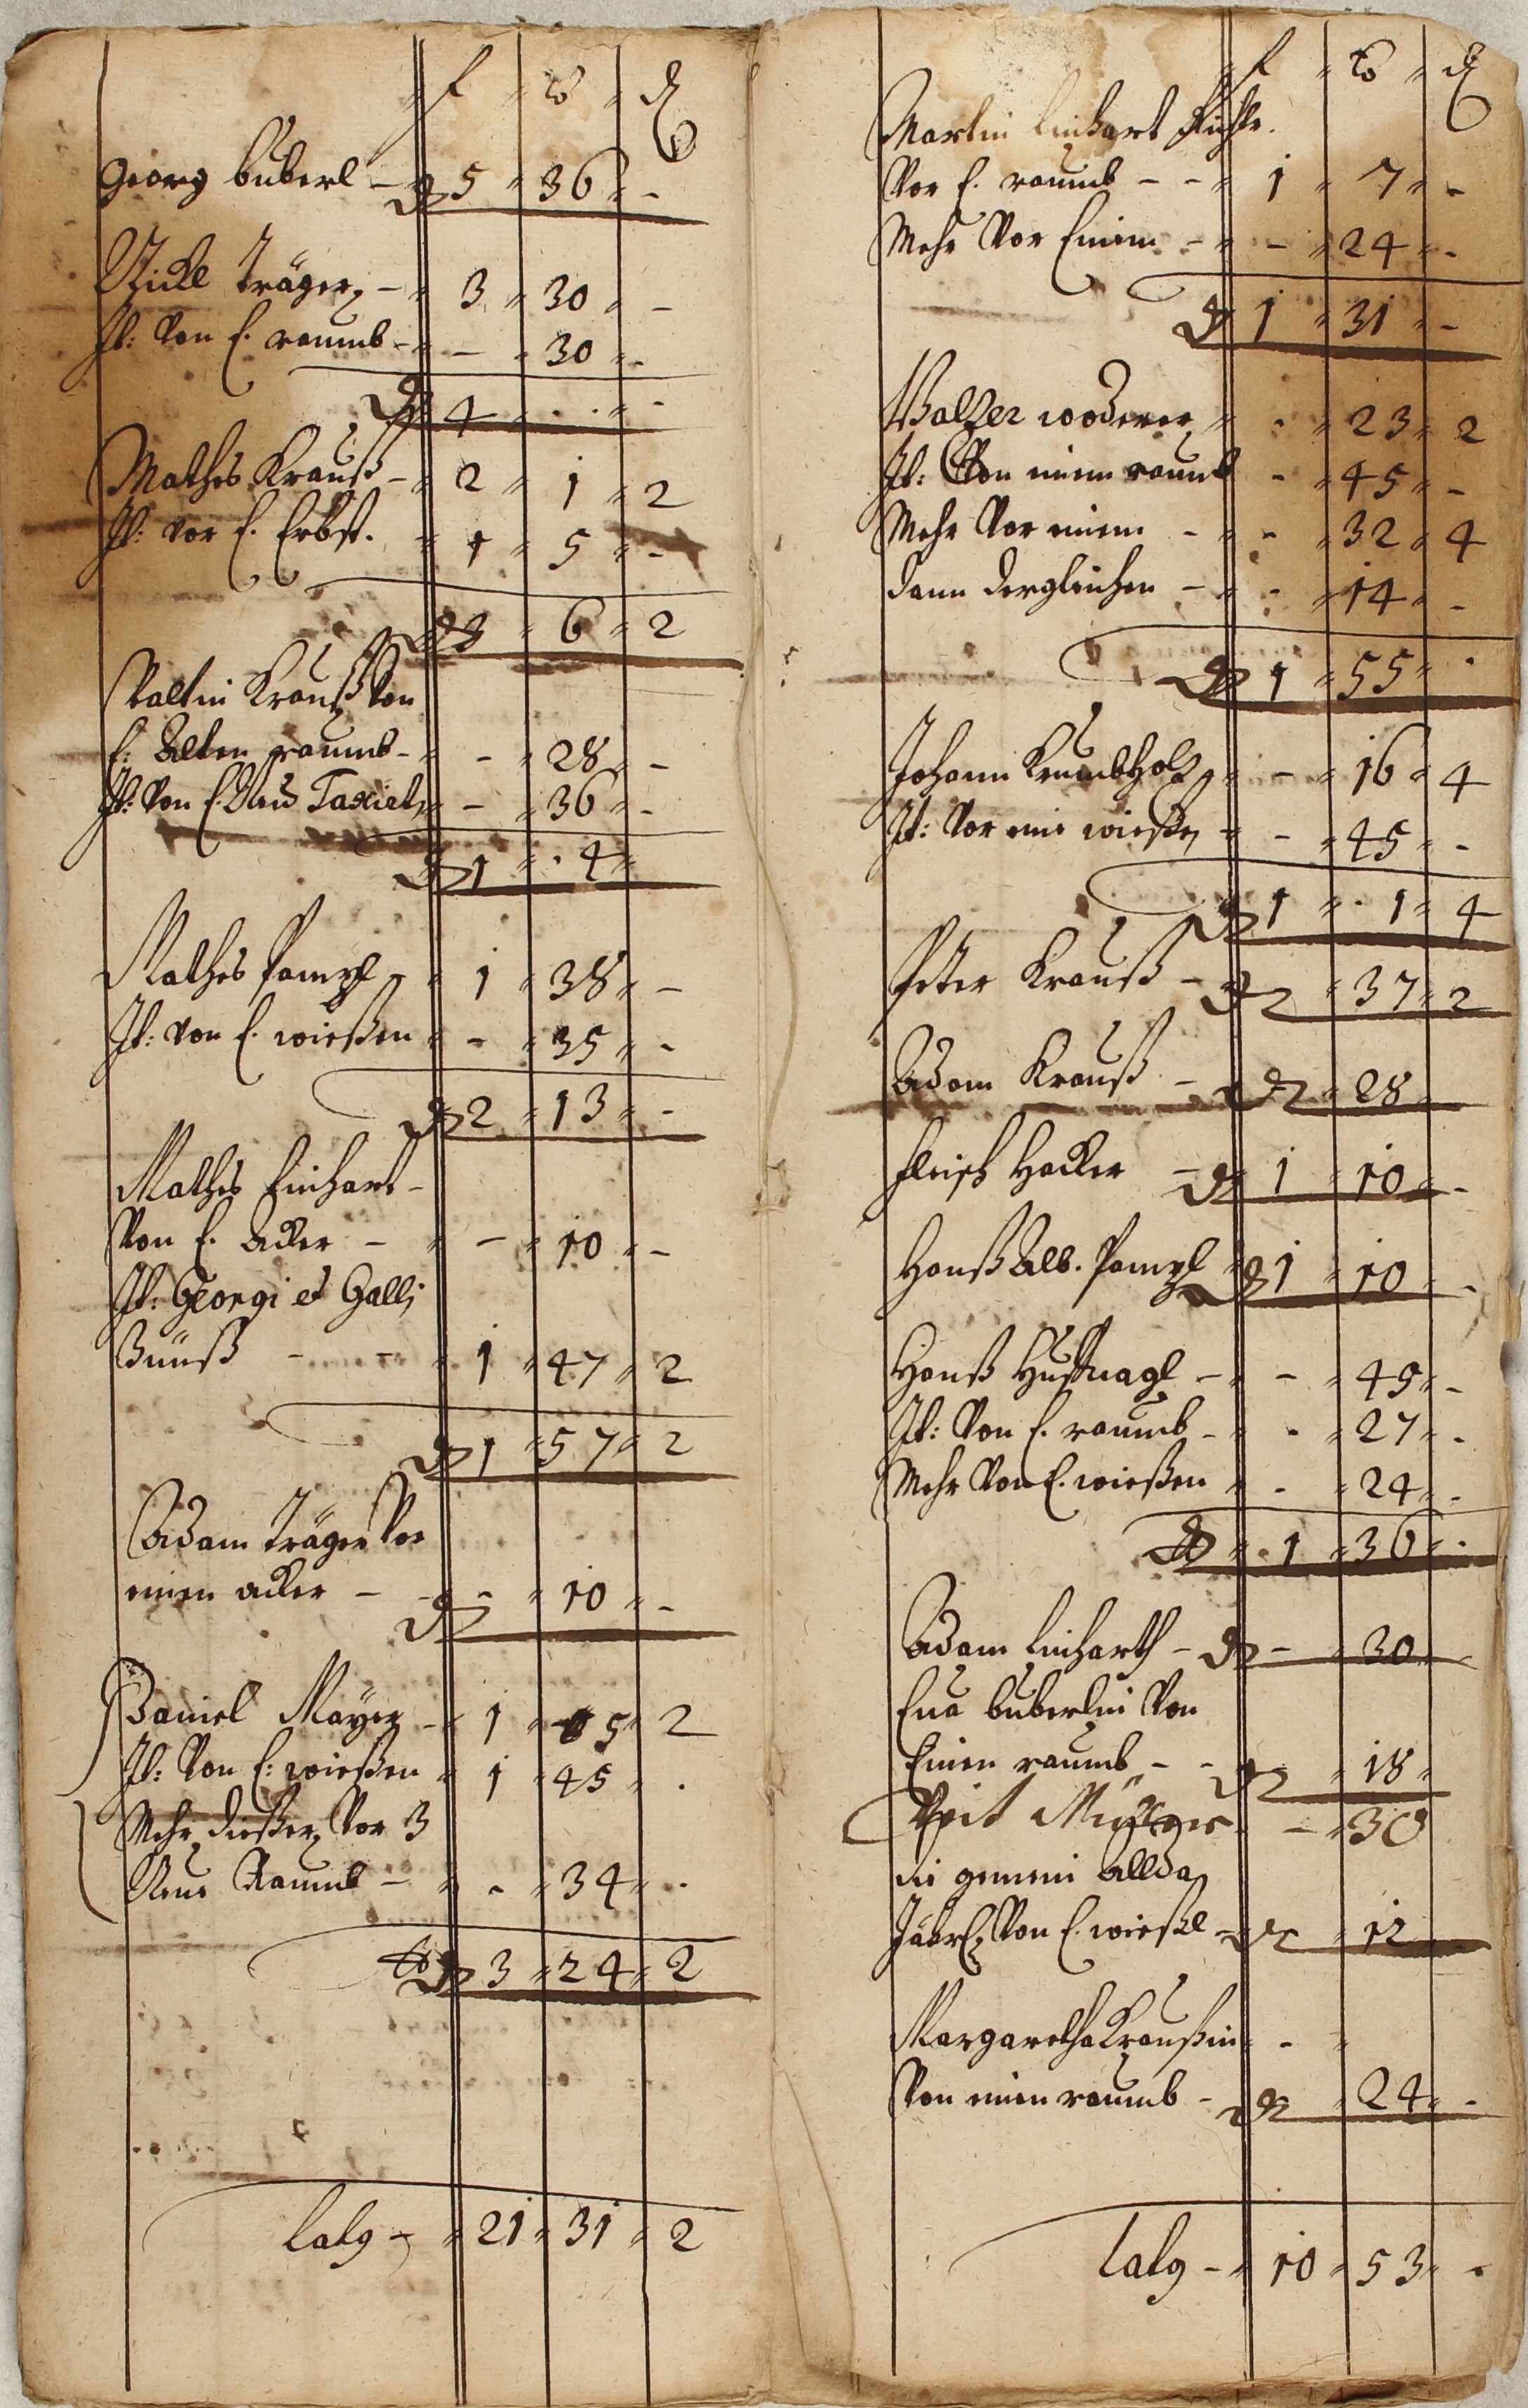 f " xr " d
Georg Buberl — 5 " 36 " -
Nickl Träger — " 3 " 30 " -
It: Von E. raumb - " - " 30 " -
4 " - " -
Mathes Krauß — " 2 " 1 " 2
It: vor E. Erbst. " 1 " 5 " -
3 " 6 " 2
Valtin Krauß Von
E: Alten raumb - " - " 28 " -
It: Von E. Neu Taxiet " - " 36 " -
1 " . 4 "
Mathes Pampl - " 1 " 38 " -
It: von E. wießen " - " 35 " -
2 " 13 " -
Mathes Linhart -
Von E. Acker - " - " 10 " -
It: Georgi et Galli
Zinnß - - " 1 " 47 " 2
1 " 57 " 2
Adam Träger Vor
einen acker - - " 10 " -
Daniel Mayer - " 1 " 5 " 2
It: Von E: wießen " 1 " 45 " .
Mehr dießer Vor 3
Neue Raumb - " - " 34 " .
3 " 24 " 2
Latg - " 21 " 31 " 2
f " xr " d
Martin Linhart
Vor E. raumb - - " 1 " 7 " -
Mehr Vor Einem - " - " 24 " -
1 " 31 " -
Walzer woderer " . " 23 " 2
It: Von einem raumb - " 45 " -
Mehr Vor einem - " - " 32 " 4
dann dergleichen - " - " 14 " -
1 " 55 " .
Johann Krumbholz " - " 16 " 4
It: Vor eine wießen " - " 45 " -
1 " . 1 " 4
Peter Krauß - " 37 " 2
Adam Krauß - " 28
Fleisch Hacker - 1 " 10 " -
Hanß Alb. Pampl " 1 " 10 " -
Hanß Huffnagl - " - " 45 " -
It: Von E. raumb - " - " 27 " -
Mehr Von E. wießen " - " 24 " -
" . 1 " 36 " .
Adam Linharth - - " 30 " -
Eva Buberlin Von
Einen raumb - - " 18 "
Veit - " 30
die gemein allda
Jährl. Von E. wießl - " 12
Margaretha Kraußin " - "
Von einen raumb - " 24 " -
Latg - " 10 " 53 " .